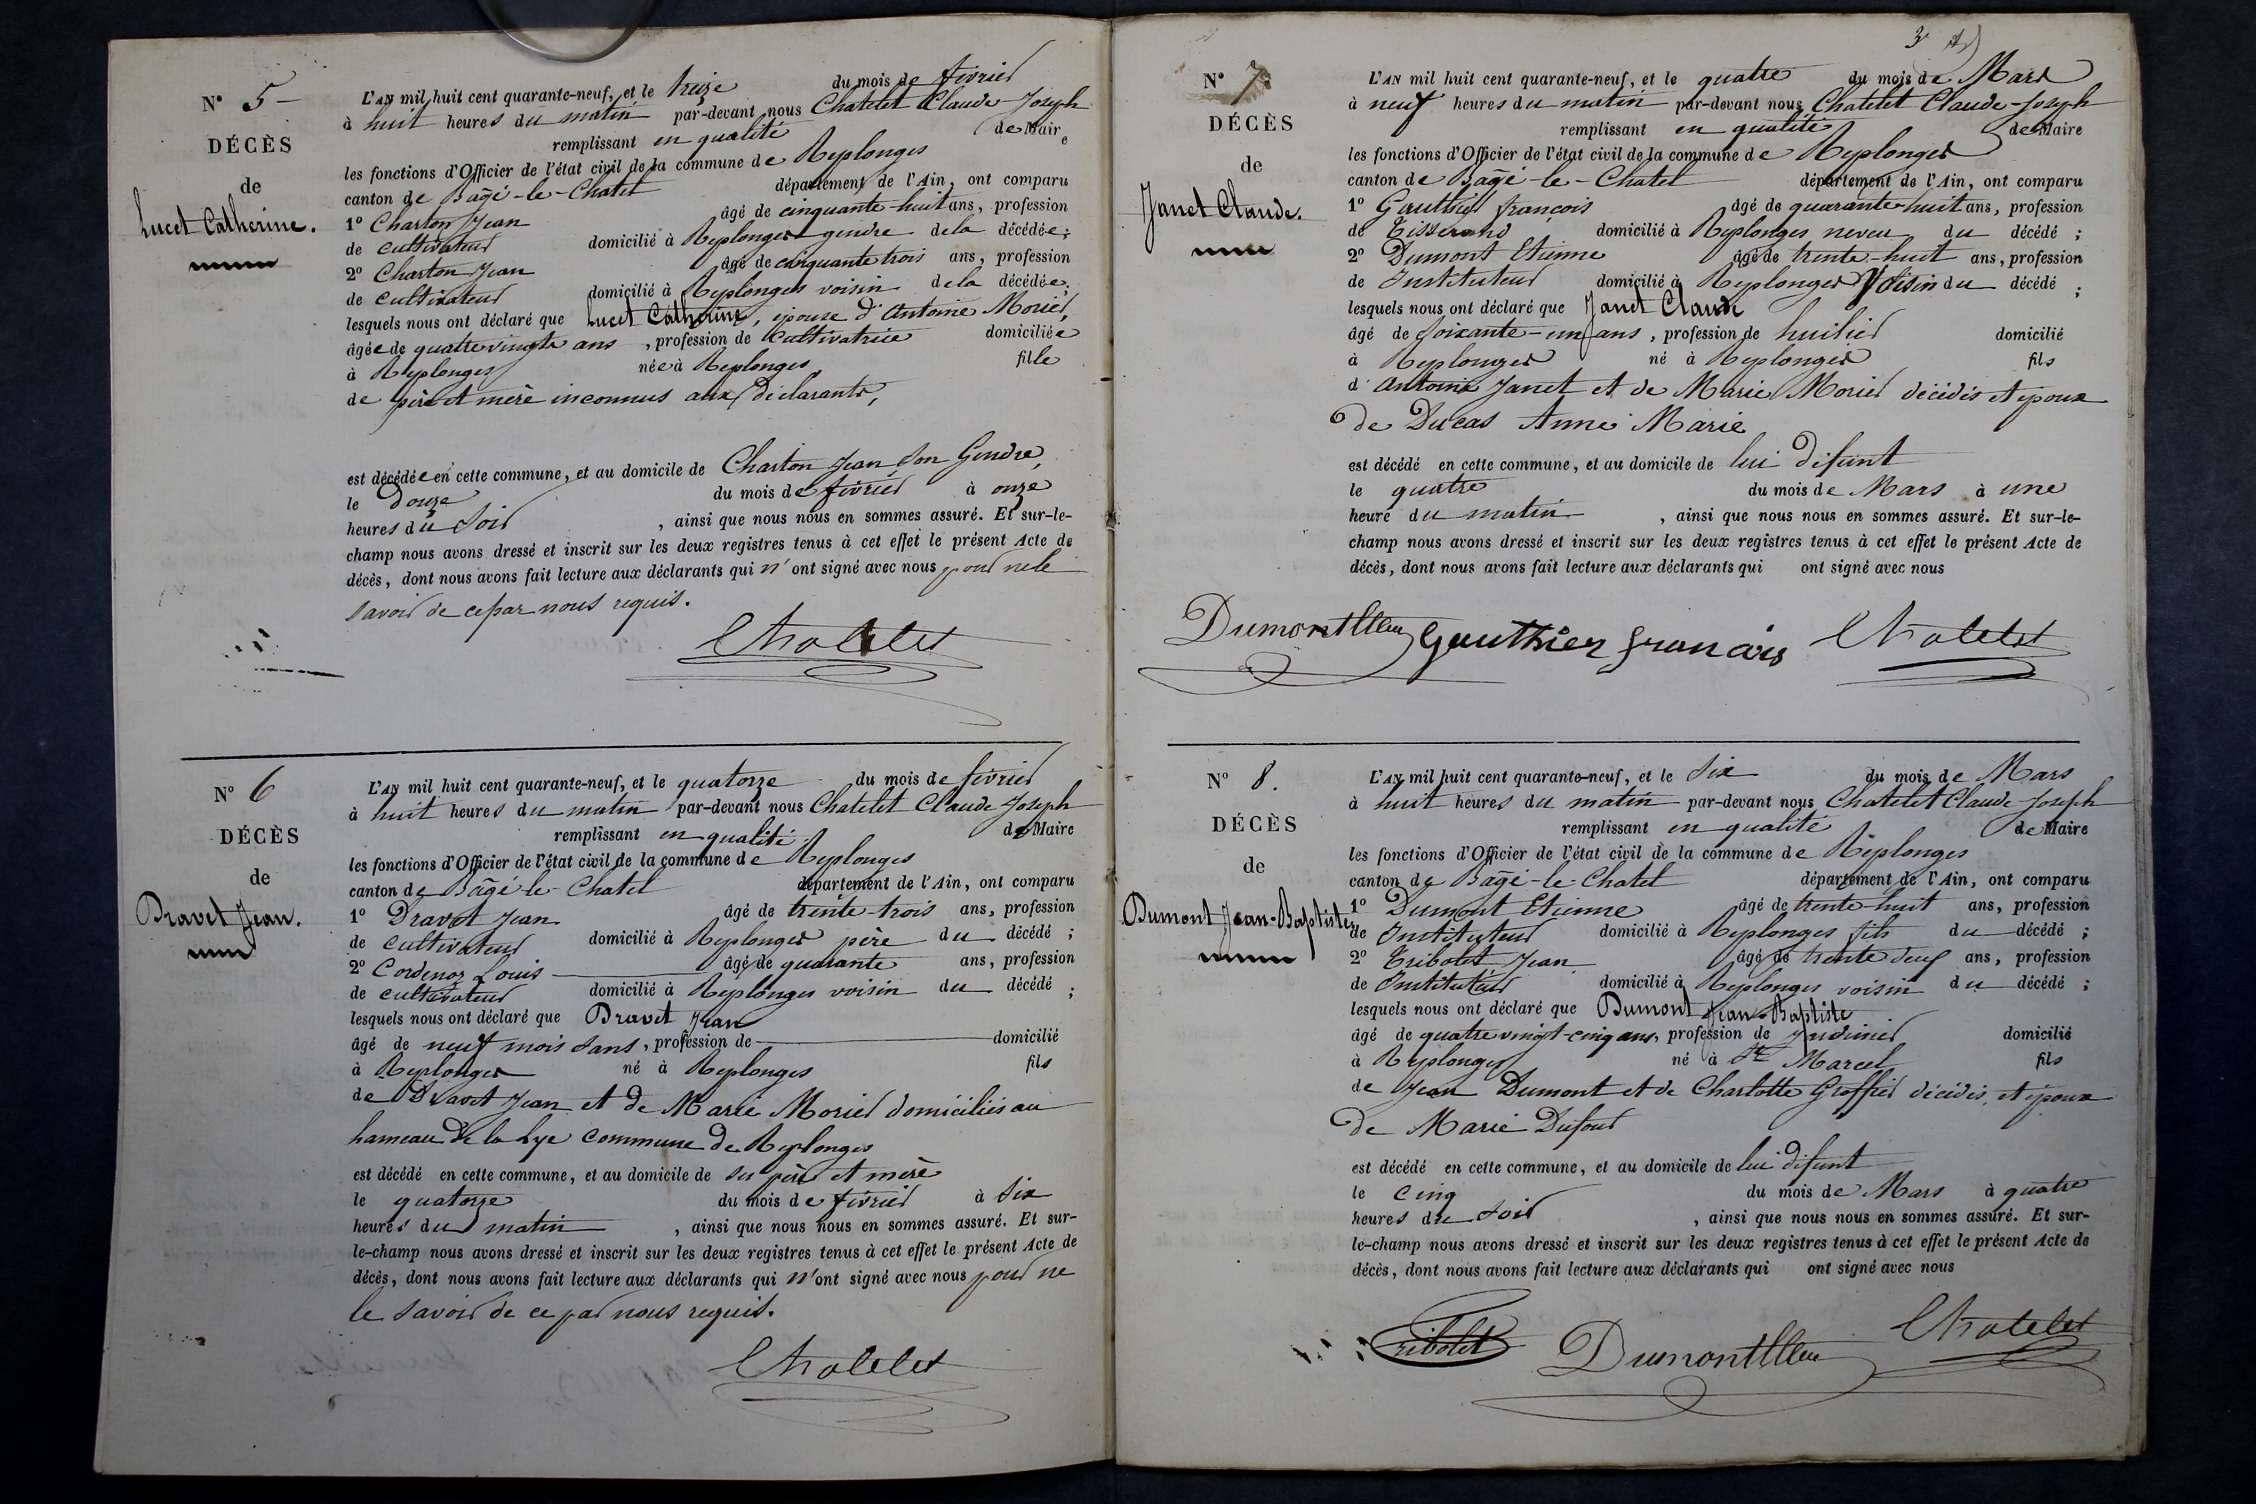 N° 5
DÉCÈS
de
Lucet Catherine.
L'AN mil huit cent quarante-neuf, et le treize du mois de février
à huit heures du matin par-devant nous Chatelet Claude-Joseph
remplissant en qualité de Maire
les fonctions d'Officier de l'état civil de la commune de Replonges
canton de Bagé-le-Chatel département de l'Ain, ont comparu
1° Charton Jean âgé de cinquante-huit ans, profession
de cultivateur domicilié à Replonges gendre de la décédée;
2° Charton Jean âgé de cinquante trois ans, profession
de cultivateur domicilié à Replonges voisin de la décédée;
lesquels nous ont déclaré que Lucet Catherine, épouse d'Antoine Morier,
âgée de quatre vingts ans, profession de cultivatrice domiciliée
à Replonges née à Replonges fille
de père et mère inconnus aux déclarants,
est décédée en cette commune, et au domicile de Charton Jean son Gendre,
le douze du mois de février à onze
heures du soir, ainsi que nous nous en sommes assuré. Et sur-le-
champ nous avons dressé et inscrit sur les deux registres tenus à cet effet le présent Acte de
décès, dont nous avons fait lecture aux déclarants qui n'ont signé avec nous pour ne le
savoir de ce par nous requis.
Chatelet
N° 6
DÉCÈS
de
Dravet Jean.
L'AN mil huit cent quarante-neuf, et le quatorze du mois de février
à huit heures du matin par-devant nous Chatelet Claude Joseph
remplissant en qualité de Maire
les fonctions d'Officier de l'état civil de la commune de Replonges
canton de Bagé-le-Chatel département de l'Ain, ont comparu
1° Dravet Jean âgé de trente-trois ans, profession
de cultivateur domicilié à Replonges père du décédé;
2° Cordenoz Louis âgé de quarante ans, profession
de cultivateur domicilié à Replonges voisin du décédé;
lesquels nous ont déclaré que Dravet Jean
âgé de neuf mois sans, profession de domicilié
à Replonges né à Replonges fils
de Dravet Jean et de Marie Morier domiciliés au
hameau de la Lye commune de Replonges
est décédé en cette commune, et au domicile de ses père et mère
le quatorze du mois de février à six
heures du matin, ainsi que nous nous en sommes assuré. Et sur-
le-champ nous avons dressé et inscrit sur les deux registres tenus à cet effet le présent Acte de
décès, dont nous avons fait lecture aux déclarants qui n'ont signé avec nous pour ne
le savoir de ce par nous requis.
Chatelet
3
N° 7.
DÉCÈS
de
Janet Claude.
L'AN mil huit cent quarante-neuf, et le quatre du mois de Mars
à neuf heures du matin par-devant nous Chatelet Claude-Joseph
remplissant en qualité de Maire
les fonctions d'Officier de l'état civil de la commune de Replonges
canton de Bagé-le-Chatel département de l'Ain, ont comparu
1° Gauthier françois âgé de quarante-huit ans, profession
de Tisserand domicilié à Replonges neveu du décédé;
2° Dumont Etienne âgé de trente-huit ans, profession
de Instituteur domicilié à Replonges Voisin du décédé;
lesquels nous ont déclaré que Janet Claude
âgé de soixante-un ans, profession de huilier domicilié
à Replonges né à Replonges fils
d'antoine Janet et de Marie Morier décédés et époux
de Ducas Anne Marie
est décédé en cette commune, et au domicile de lui défunt
le quatre du mois de Mars à une
heure du matin, ainsi que nous nous en sommes assuré. Et sur-le-
champ nous avons dressé et inscrit sur les deux registres tenus à cet effet le présent Acte de
décès, dont nous avons fait lecture aux déclarants qui ont signé avec nous
Dumont Gauthier françois Chatelet
N° 8.
DÉCÈS
de
Dumont Jean-Baptiste
L'AN mil huit cent quarante-neuf, et le six du mois de Mars
à huit heures du matin par-devant nous Chatelet Claude-Joseph
remplissant en qualité de Maire
les fonctions d'Officier de l'état civil de la commune de Replonges
canton de Bagé-le-Chatel département de l'Ain, ont comparu
1° Dumont Etienne âgé de trente-huit ans, profession
de Instituteur domicilié à Replonges fils du décédé;
2° Tribolet Jean âgé de trente deux ans, profession
de Instituteur domicilié à Replonges voisin du décédé;
lesquels nous ont déclaré que Dumont Jean-Baptiste
âgé de quatre vingt-cinq ans, profession de Jardinier domicilié
à Replonges né à St Marcel fils
de Jean Dumont et de Charlotte Groffier décédés, et époux
de Marie Dufour
est décédé en cette commune, et au domicile de lui défunt
le cinq du mois de Mars à quatre
heures du soir, ainsi que nous nous en sommes assuré. Et sur-
le-champ nous avons dressé et inscrit sur les deux registres tenus à cet effet le présent Acte de
décès, dont nous avons fait lecture aux déclarants qui ont signé avec nous
Tribolet Dumont Chatelet